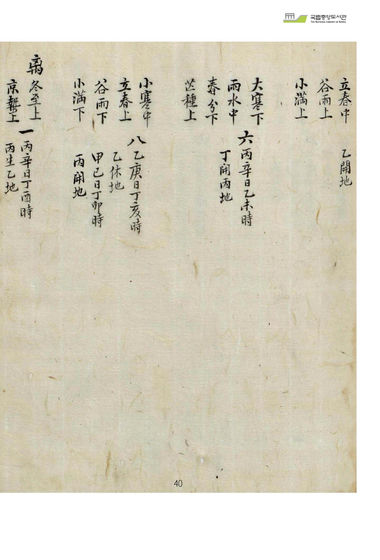 국립중앙도서관
立春中 乙開地
谷雨上
小滿上
大寒下 六 丙辛日乙未時
雨水中 丁開丙地
春分下
芒種上
小寒中 八 乙庚日丁亥時
立春上 乙休地
谷雨下 甲己日丁卯時
小滿下 丙開地
冬至上 一 丙辛日丁酉時
京蟄上 丙生乙地
40